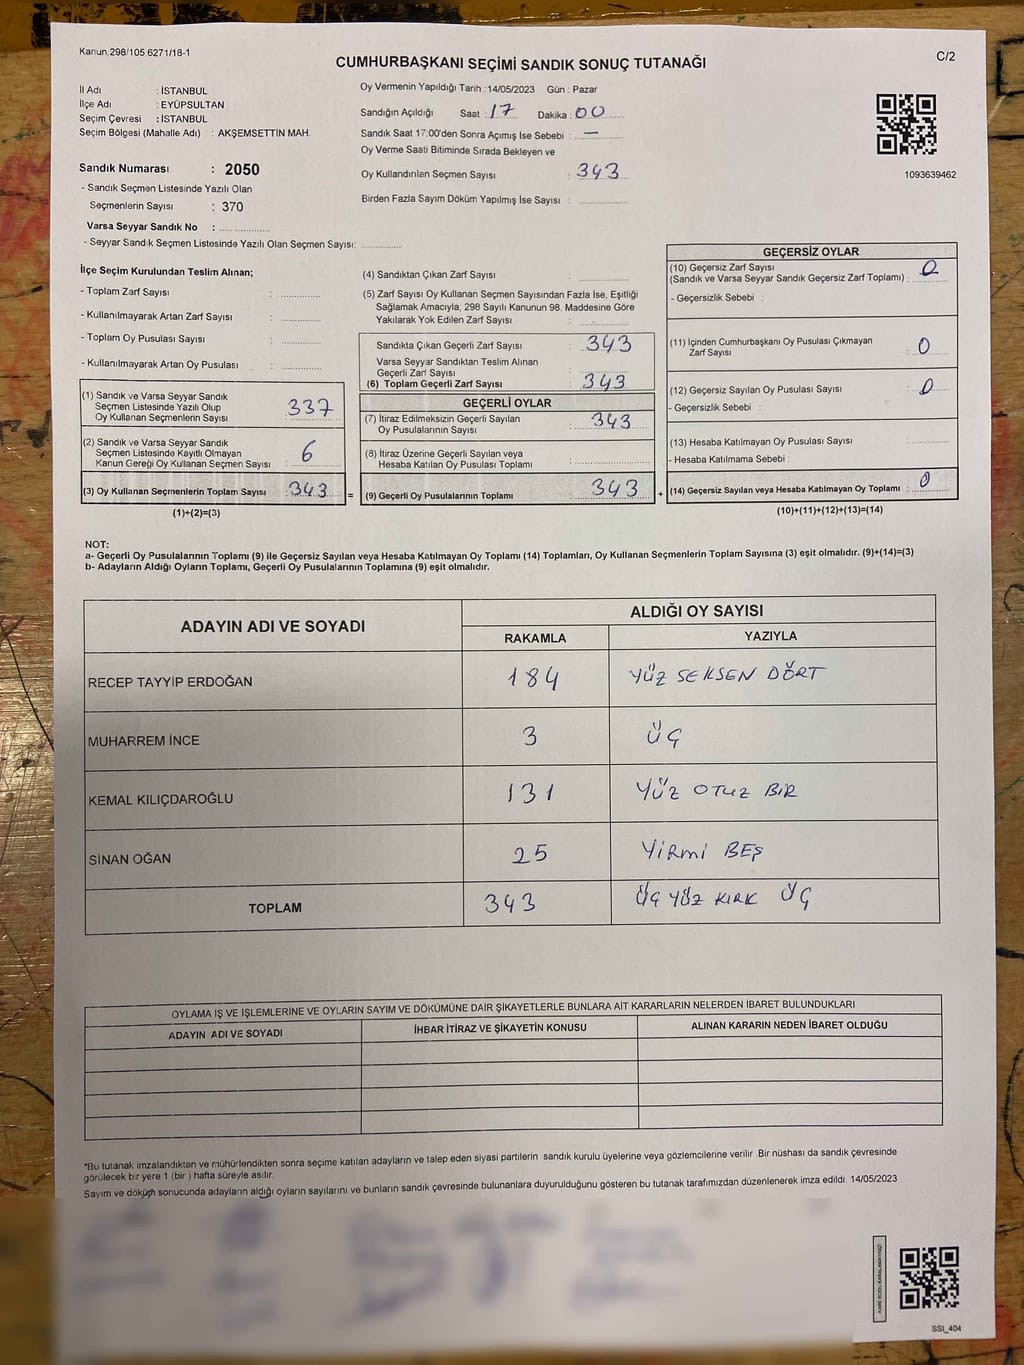 Kanun.298/105.6271/18-1
CUMHURBAŞKANI SEÇİMİ SANDIK SONUÇ TUTANAĞI
C/2
İl Adı : İSTANBUL
İlçe Adı : EYÜPSULTAN
Seçim Çevresi : İSTANBUL
Seçim Bölgesi (Mahalle Adı) : AKŞEMSETTİN MAH.
Sandık Numarası : 2050
- Sandık Seçmen Listesinde Yazılı Olan
Seçmenlerin Sayısı : 370
Varsa Seyyar Sandık No :
- Seyyar Sandık Seçmen Listesinde Yazılı Olan Seçmen Sayısı:
Oy Vermenin Yapıldığı Tarih : 14/05/2023 Gün : Pazar
Sandığın Açıldığı Saat : 17 Dakika : 00
Sandık Saat 17:00'den Sonra Açımış İse Sebebi : —
Oy Verme Saati Bitiminde Sırada Bekleyen ve
Oy Kullandırılan Seçmen Sayısı : 343
Birden Fazla Sayım Döküm Yapılmış İse Sayısı :
1093639462
İlçe Seçim Kurulundan Teslim Alınan;
- Toplam Zarf Sayısı :
- Kullanılmayarak Artan Zarf Sayısı :
- Toplam Oy Pusulası Sayısı :
- Kullanılmayarak Artan Oy Pusulası :
(1) Sandık ve Varsa Seyyar Sandık
Seçmen Listesinde Yazılı Olup
Oy Kullanan Seçmenlerin Sayısı : 337
(2) Sandık ve Varsa Seyyar Sandık
Seçmen Listesinde Kayıtlı Olmayan
Kanun Gereği Oy Kullanan Seçmen Sayısı : 6
(3) Oy Kullanan Seçmenlerin Toplam Sayısı : 343 =
(1)+(2)=(3)
(4) Sandıktan Çıkan Zarf Sayısı :
(5) Zarf Sayısı Oy Kullanan Seçmen Sayısından Fazla İse, Eşitliği
Sağlamak Amacıyla; 298 Sayılı Kanunun 98. Maddesine Göre
Yakılarak Yok Edilen Zarf Sayısı :
Sandıkta Çıkan Geçerli Zarf Sayısı : 343
Varsa Seyyar Sandıktan Teslim Alınan
Geçerli Zarf Sayısı :
(6) Toplam Geçerli Zarf Sayısı : 343
GEÇERLİ OYLAR
(7) İtiraz Edilmeksizin Geçerli Sayılan
Oy Pusulalarının Sayısı : 343
(8) İtiraz Üzerine Geçerli Sayılan veya
Hesaba Katılan Oy Pusulası Toplamı :
(9) Geçerli Oy Pusulalarının Toplamı : 343 +
GEÇERSİZ OYLAR
(10) Geçersiz Zarf Sayısı
(Sandık ve Varsa Seyyar Sandık Geçersiz Zarf Toplamı) : 0
- Geçersizlik Sebebi :
(11) İçinden Cumhurbaşkanı Oy Pusulası Çıkmayan
Zarf Sayısı : 0
(12) Geçersiz Sayılan Oy Pusulası Sayısı : 0
- Geçersizlik Sebebi :
(13) Hesaba Katılmayan Oy Pusulası Sayısı :
- Hesaba Katılmama Sebebi :
(14) Geçersiz Sayılan veya Hesaba Katılmayan Oy Toplamı : 0
(10)+(11)+(12)+(13)=(14)
NOT:
a- Geçerli Oy Pusulalarının Toplamı (9) ile Geçersiz Sayılan veya Hesaba Katılmayan Oy Toplamı (14) Toplamları, Oy Kullanan Seçmenlerin Toplam Sayısına (3) eşit olmalıdır. (9)+(14)=(3)
b- Adayların Aldığı Oyların Toplamı, Geçerli Oy Pusulalarının Toplamına (9) eşit olmalıdır.
ADAYIN ADI VE SOYADI
ALDIĞI OY SAYISI
RAKAMLA YAZIYLA
RECEP TAYYİP ERDOĞAN 184 YÜZ SEKSEN DÖRT
MUHARREM İNCE 3 ÜÇ
KEMAL KILIÇDAROĞLU 131 YÜZ OTUZ BİR
SİNAN OĞAN 25 YİRMİ BEŞ
TOPLAM 343 ÜÇ YÜZ KIRK ÜÇ
OYLAMA İŞ VE İŞLEMLERİNE VE OYLARIN SAYIM VE DÖKÜMÜNE DAİR ŞİKAYETLERLE BUNLARA AİT KARARLARIN NELERDEN İBARET BULUNDUKLARI
ADAYIN ADI VE SOYADI İHBAR İTİRAZ VE ŞİKAYETİN KONUSU ALINAN KARARIN NEDEN İBARET OLDUĞU
*Bu tutanak imzalandıktan ve mühürlendikten sonra seçime katılan adayların ve talep eden siyasi partilerin sandık kurulu üyelerine veya gözlemcilerine verilir. Bir nüshası da sandık çevresinde
görülecek bir yere 1 (bir ) hafta süreyle asılır.
Sayım ve döküm sonucunda adayların aldığı oyların sayılarını ve bunların sandık çevresinde bulunanlara duyurulduğunu gösteren bu tutanak tarafımızdan düzenlenerek imza edildi. 14/05/2023
KARE KODU KARALAMAYINIZ!
SSI_404